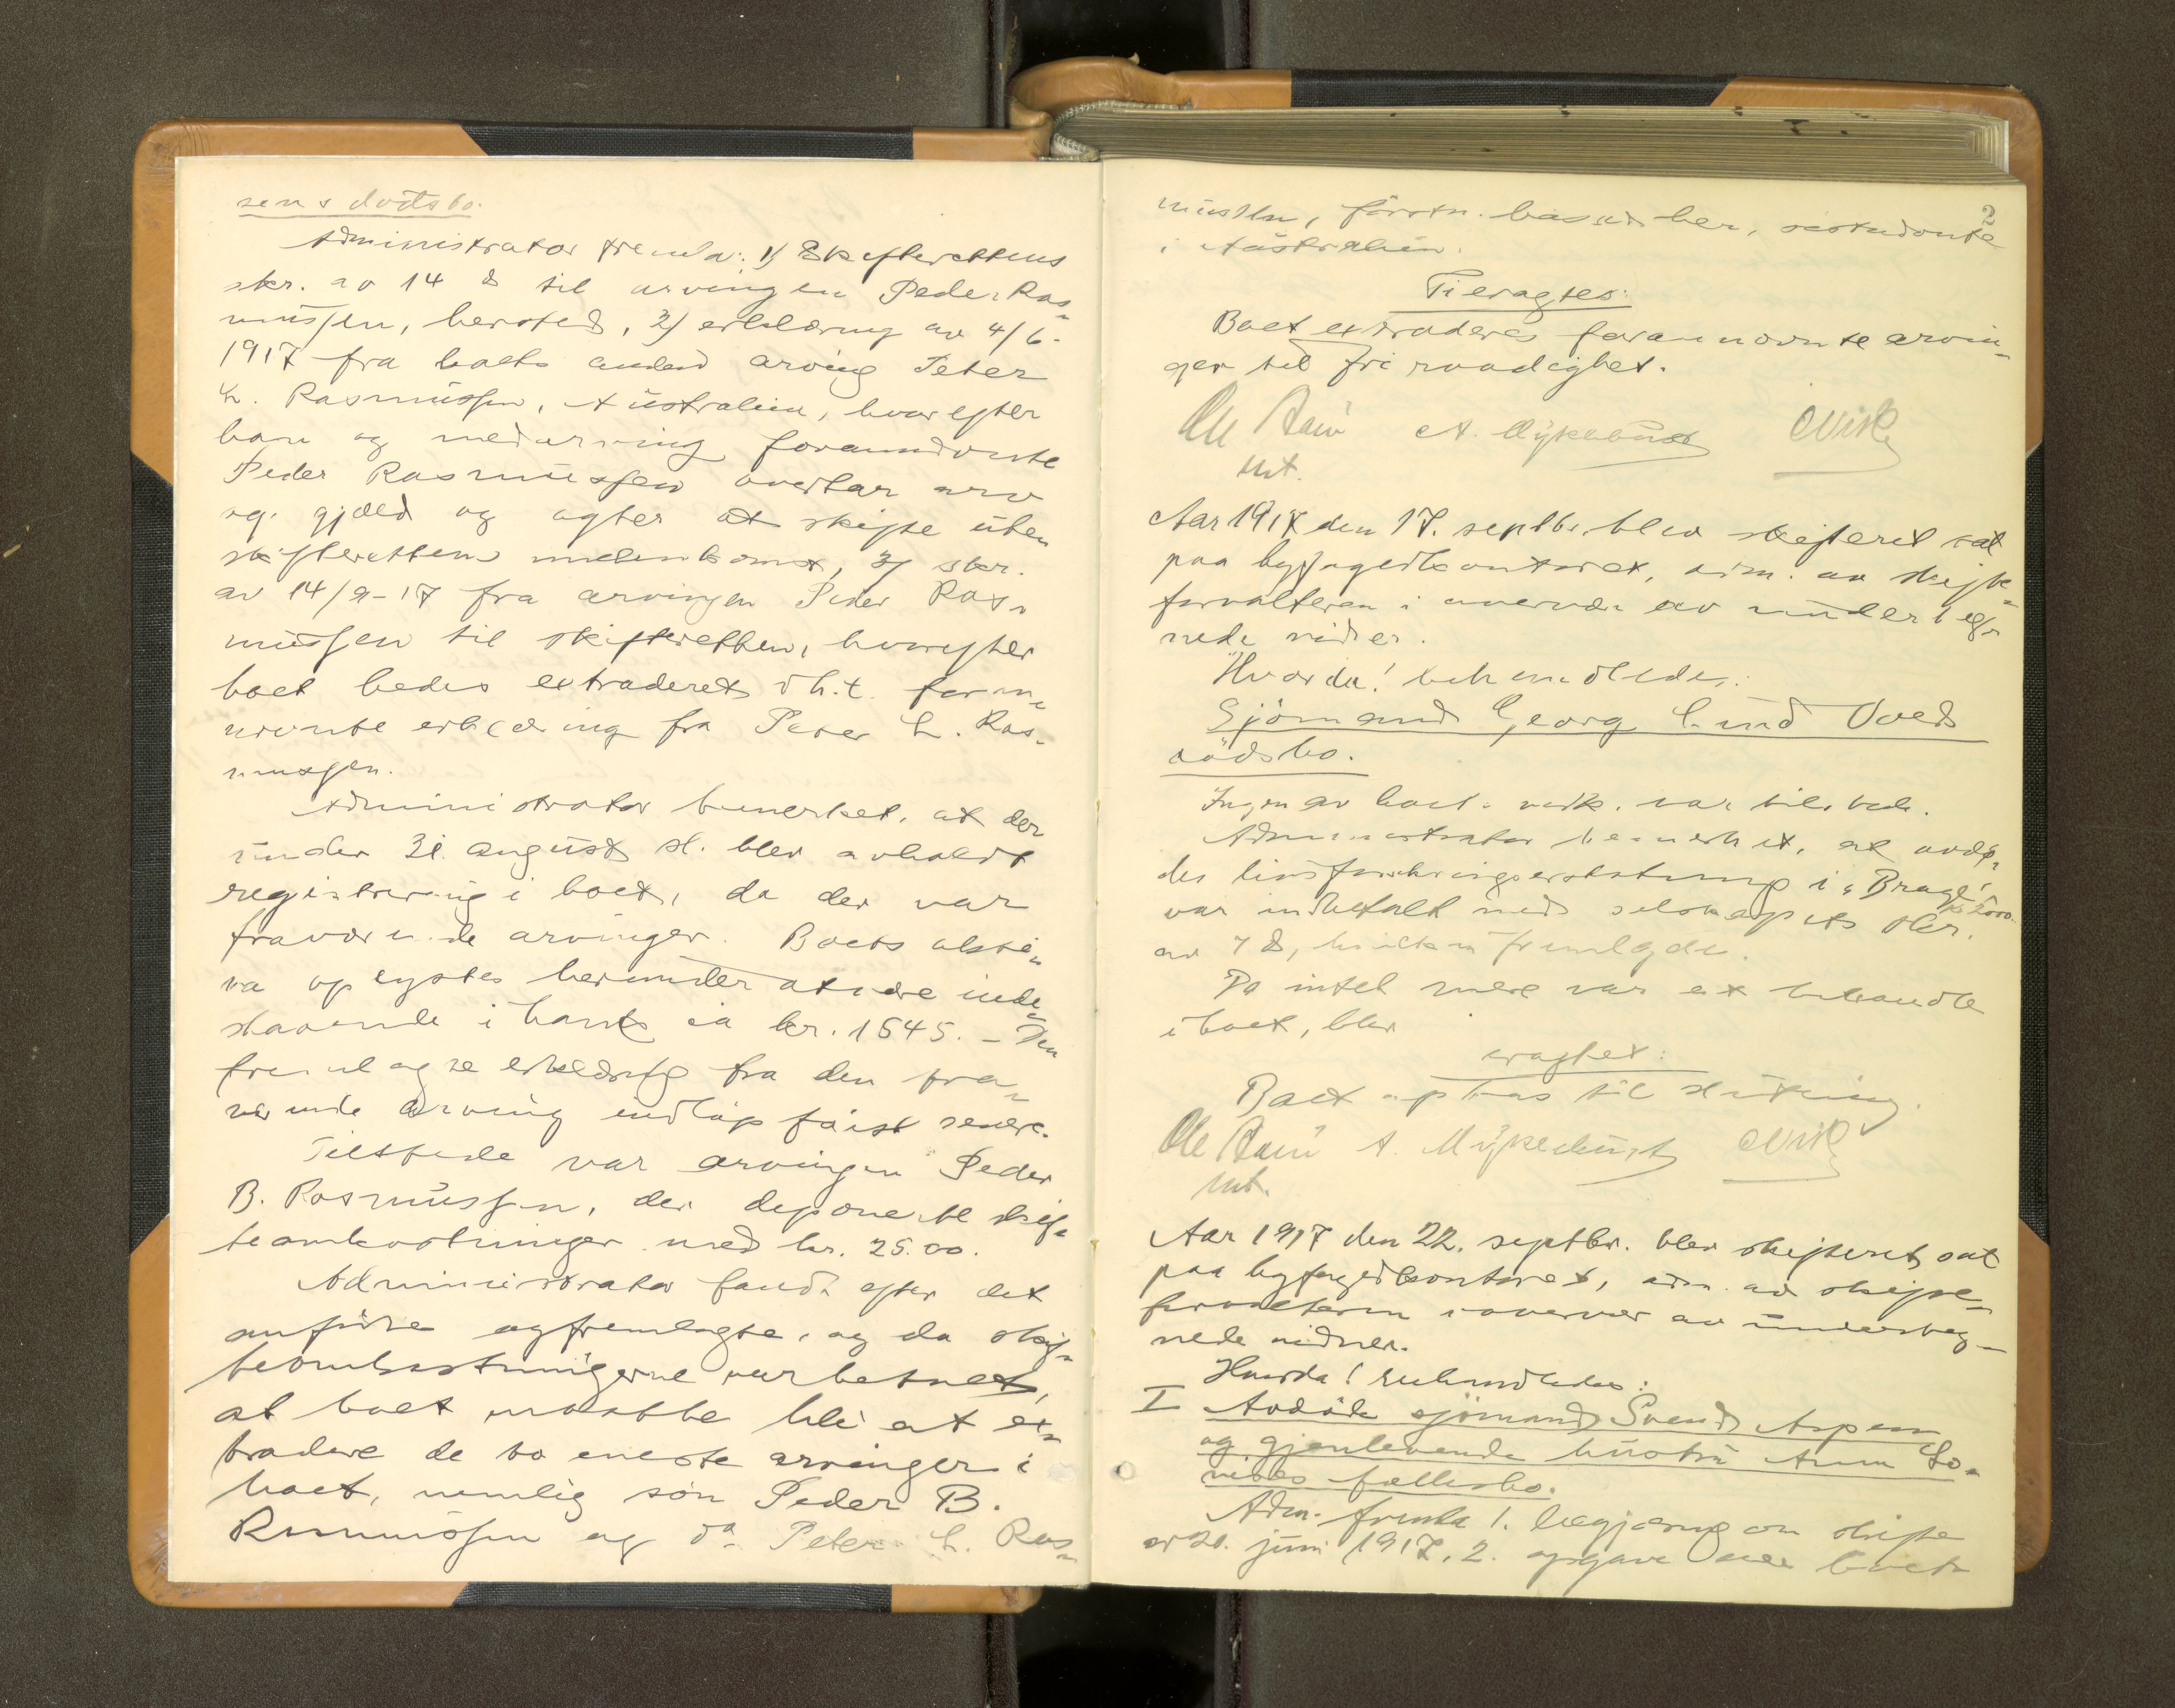 sens dødsbo.
Administrator freml.: 1) Skifterettens
skr. av 14 ds til arvingen Peder Ras-
mussen, hersteds, 2) erklæring av 4/6-
1917 fra boets anden arving Peter
L. Rasmussen, Australien, hvorefter
han og medarving forannævnte
Peder Rasmussen overtar arv
og gjæld og agter at skifte uten
skifterettens mellemkomst, 3) skr.
av 14/9-17 fra arvingen Peder Ras-
mussen til skifteretten, hvorefter
boet bedes extraderet i h.t. foran-
nævnte erklæring fra Peter L. Ras-
mussen.
Administrator bemerket, at der
under 31. august sl. blev avholdt
registrering i boet, da der var
fraværende arvinger. Boets akti-
va oplystes herunder at være inde-
staaende i bank ca kr. 1545.- Den
fremlagte erklæring fra den fra-
værende arving indløp først senere.
Tilstede var arvingen Peder
B. Rasmussen, der deponerte skif-
teomkostninger med kr. 25.00.
Administrator fandt efter det
anførte og fremlagte, og da skif-
teomkostningerne var betalt,
at boet maatte bli at ex-
tradere de to eneste arvinger i
boet, nemlig søn Peder B.
Rasmussen og do Peter L. Ras-
2
mussen, førstn. bosat her, sistnævnte
i Australien.
Ti eragtes:
Boet extraderes forannævnte arvin-
ger til fri raadighet.
Ole A. Myklebust
Aar 1917 den 17. septbr. blev skifteret sat
paa byfogedkontoret, adm. av skifte-
forvalteren i overvær av underteg-
nede vidner.
Hvorda! behandledes:
Sjømand Georg Lund Voets
dødsbo.
Ingen av boets vedk. var tilstede.
Administrator bemerket, at avdø-
des livsforsikringserstatning i "Brage" kr. 2000.
var indbetalt med selskapets skr.
av 7 ds, hvilken fremlagdes.
Da intet mere var at behandle
i boet, blev
eragtet:
Boet optas til slutning.
Ole A. Myklebust
Aar 1917 den 22. septbr. blev skifteret sat
paa byfogedkontoret, adm. av skifte-
forvalteren i overvær av underteg-
nede vidner.
Hvorda! behandledes:
I Avdøde sjømand Svend Aspem
og gjenlevende hustru Anna Lo-
vises fællesbo.
Adm. freml. 1. begjæring om skifte
av 20. juni 1917, 2. opgave over boets